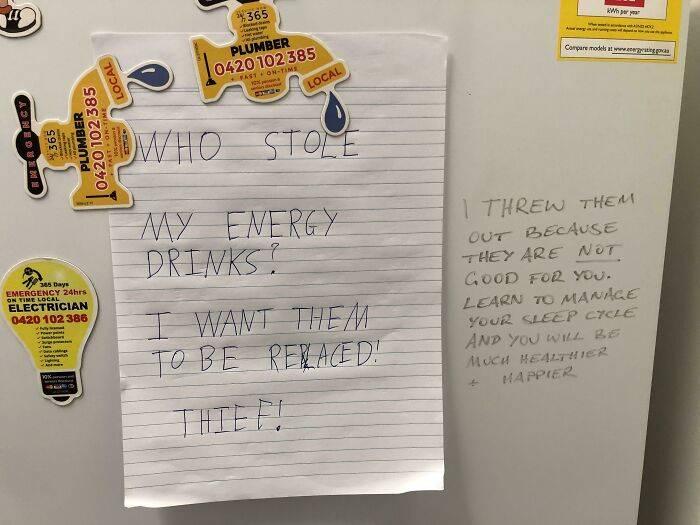 24/7 365
PLUMBER
0420 102 385
FAST + ON-TIME
LOCAL
EMERGENCY
365
PLUMBER
0420 102 385
LOCAL
WHO STOLE
MY ENERGY
DRINKS?
I WANT THEM
TO BE REPLACED!
THIEF!
I THREW THEM
OUT BECAUSE
THEY ARE NOT
GOOD FOR YOU.
LEARN TO MANAGE
YOUR SLEEP CYCLE
AND YOU WILL BE
MUCH HEALTHIER
+ HAPPIER
365 Days
EMERGENCY 24hrs
ON TIME LOCAL
ELECTRICIAN
0420 102 386
kWh per year
Compare models at www.energyrating.gov.au